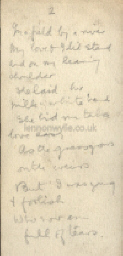 2
In a field by a river
My love & I did stand
And on my leaning
shoulder
She laid her
snow white hand
She bid me take
love easy
As the grass grows
on the weirs
But I was young
& foolish
full of tears.